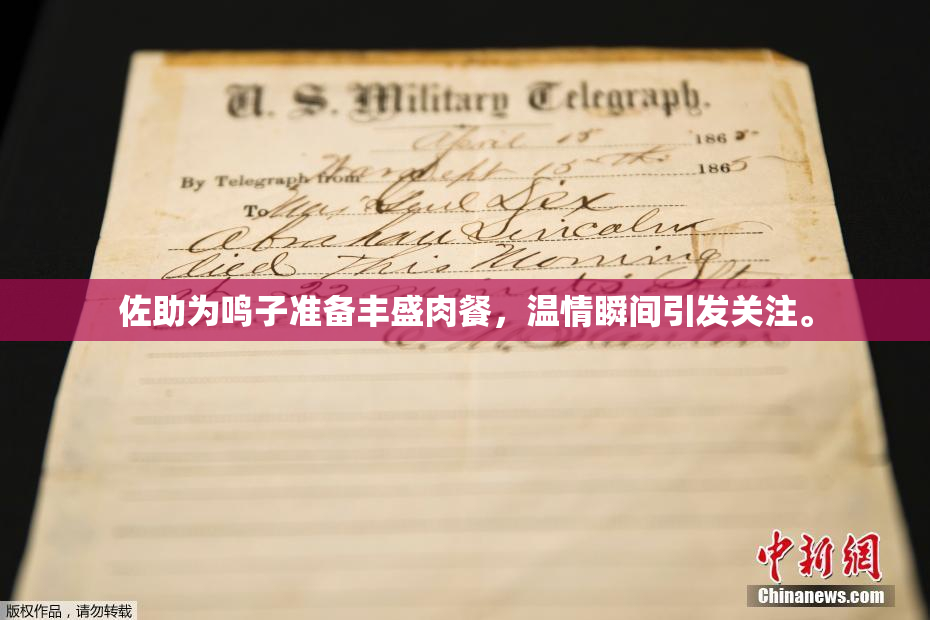 U. S. Military Telegraph.
April 15 1865
By Telegraph from War Dept 15th 1865
To Maj Genl Dix
Abraham Lincoln
died This Morning
at 22 minutes after
佐助为鸣子准备丰盛肉餐，温情瞬间引发关注。
E. M. Stanton
中新网
Chinanews.com
版权作品，请勿转载